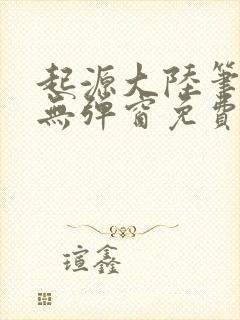 起源大陸筆
無彈窗免費
瑄鑫